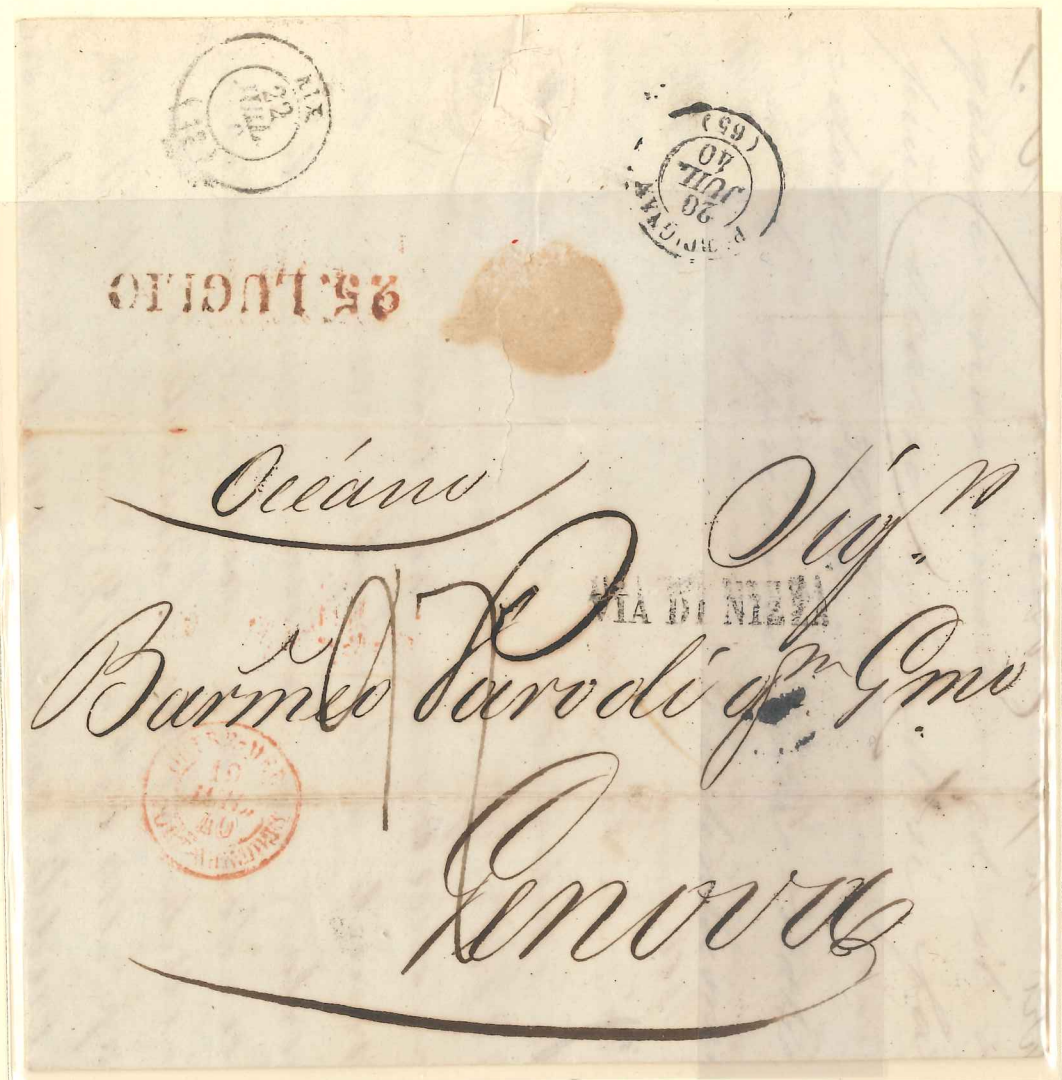 AIX
22
JUIL
(12)
(65)
40
JUIL
20
25. LUGLIO
Océano
Sig.n
VIA DI NIZZA
Barmeo Parodi qm Gmo
19
JUIL
40
Genova